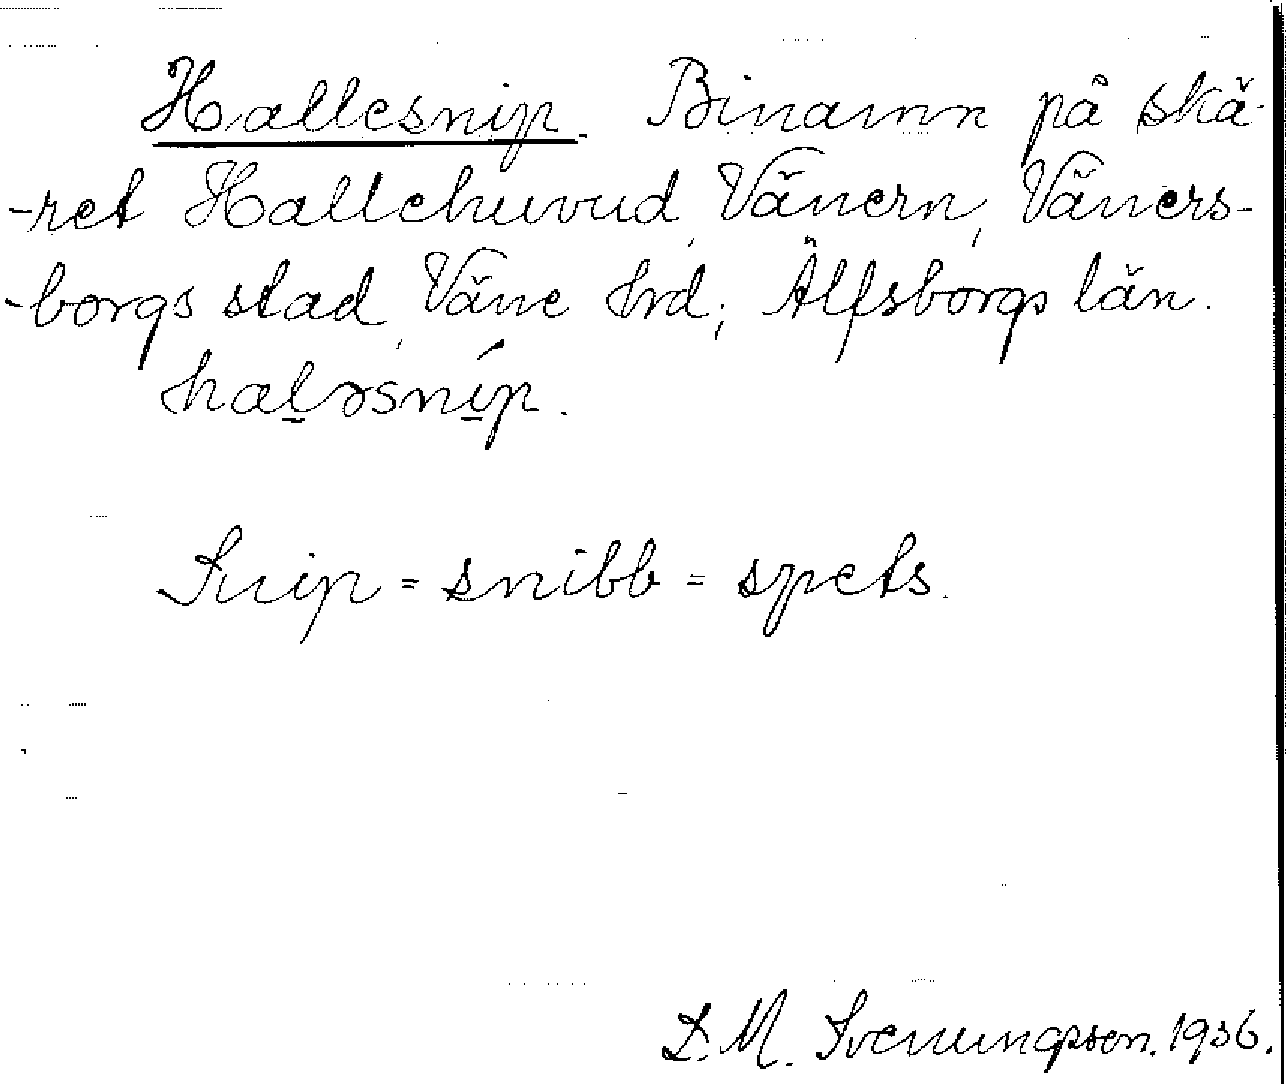 Hallesnip. Binamn på skä-
-ret Hallehuvud, Vänern, Väners-
-borgs stad, Väne hrd; Älfsborgs län.
haləsnip.
Snip = snibb = spets.
D. M. Svenungsson. 1936.